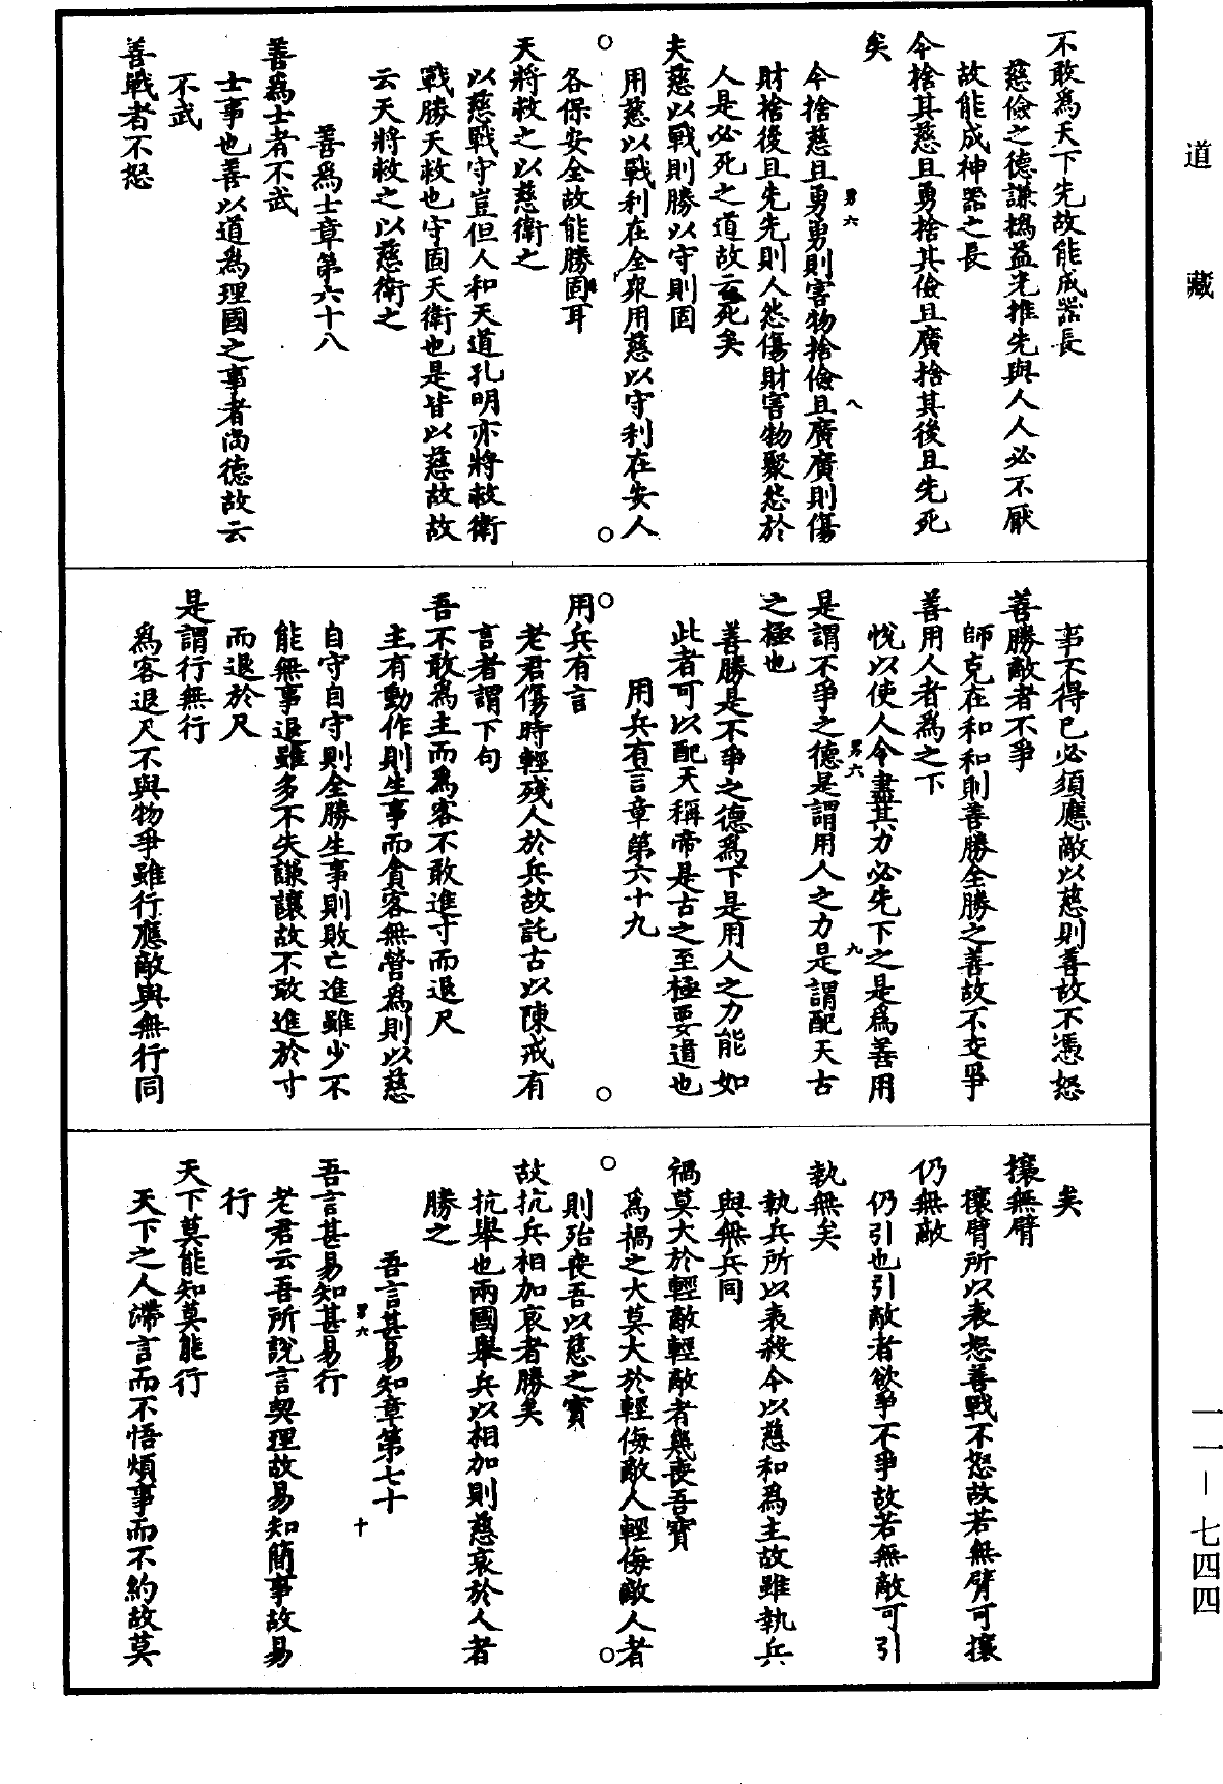 道藏
不敢為天下先故能成器長
慈儉之德謙撝益光推先與人人必不厭
故能成神器之長
今捨其慈且勇捨其儉且廣捨其後且先死
矣
今捨慈且勇勇則害物捨儉且廣廣則傷
財捨後且先先則人怨傷財害物聚怨於
人是必死之道故云死矣
夫慈以戰則勝以守則固
用慈以戰利在全衆用慈以守利在安人
各保安全故能勝固耳
天將救之以慈衛之
以慈戰守豈但人和天道孔明亦將救衛
戰勝天救也守固天衛也是皆以慈故故
云天將救之以慈衛之
善為士章第六十八
善為士者不武
士事也善以道為理國之事者尚德故云
不武
善戰者不怒
事不得已必須應敵以慈則善故不憑怒
善勝敵者不爭
師克在和和則善勝全勝之善故不交爭
善用人者為之下
悅以使人令盡其力必先下之是為善用
是謂不爭之德是謂用人之力是謂配天古
之極也
善勝是不爭之德為下是用人之力能如
此者可以配天稱帝是古之至極要道也
用兵有言章第六十九
用兵有言
老君傷時輕殘人於兵故託古以陳戒有
言者謂下句
吾不敢為主而為客不敢進寸而退尺
主有動作則生事而貪客無營為則以慈
自守自守則全勝生事則敗亡進雖少不
能無事退雖多不失謙讓故不敢進於寸
而退於尺
是謂行無行
為客退尺不與物爭雖行應敵與無行同
矣
攘無臂
攘臂所以表怒善戰不怒故若無臂可攘
仍無敵
仍引也引敵者欲爭不爭故若無敵可引
執無矣
執兵所以表殺今以慈和為主故雖執兵
與無兵同
禍莫大於輕敵輕敵者幾喪吾寶
為禍之大莫大於輕侮敵人輕侮敵人者
則殆喪吾以慈之寶
故抗兵相加哀者勝矣
抗舉也兩國舉兵以相加則慈哀於人者
勝之
吾言甚易知章第七十
吾言甚易知甚易行
老君云吾所說言契理故易知簡事故易
行
天下莫能知莫能行
天下之人滯言而不悟煩事而不約故莫
一一－七四四